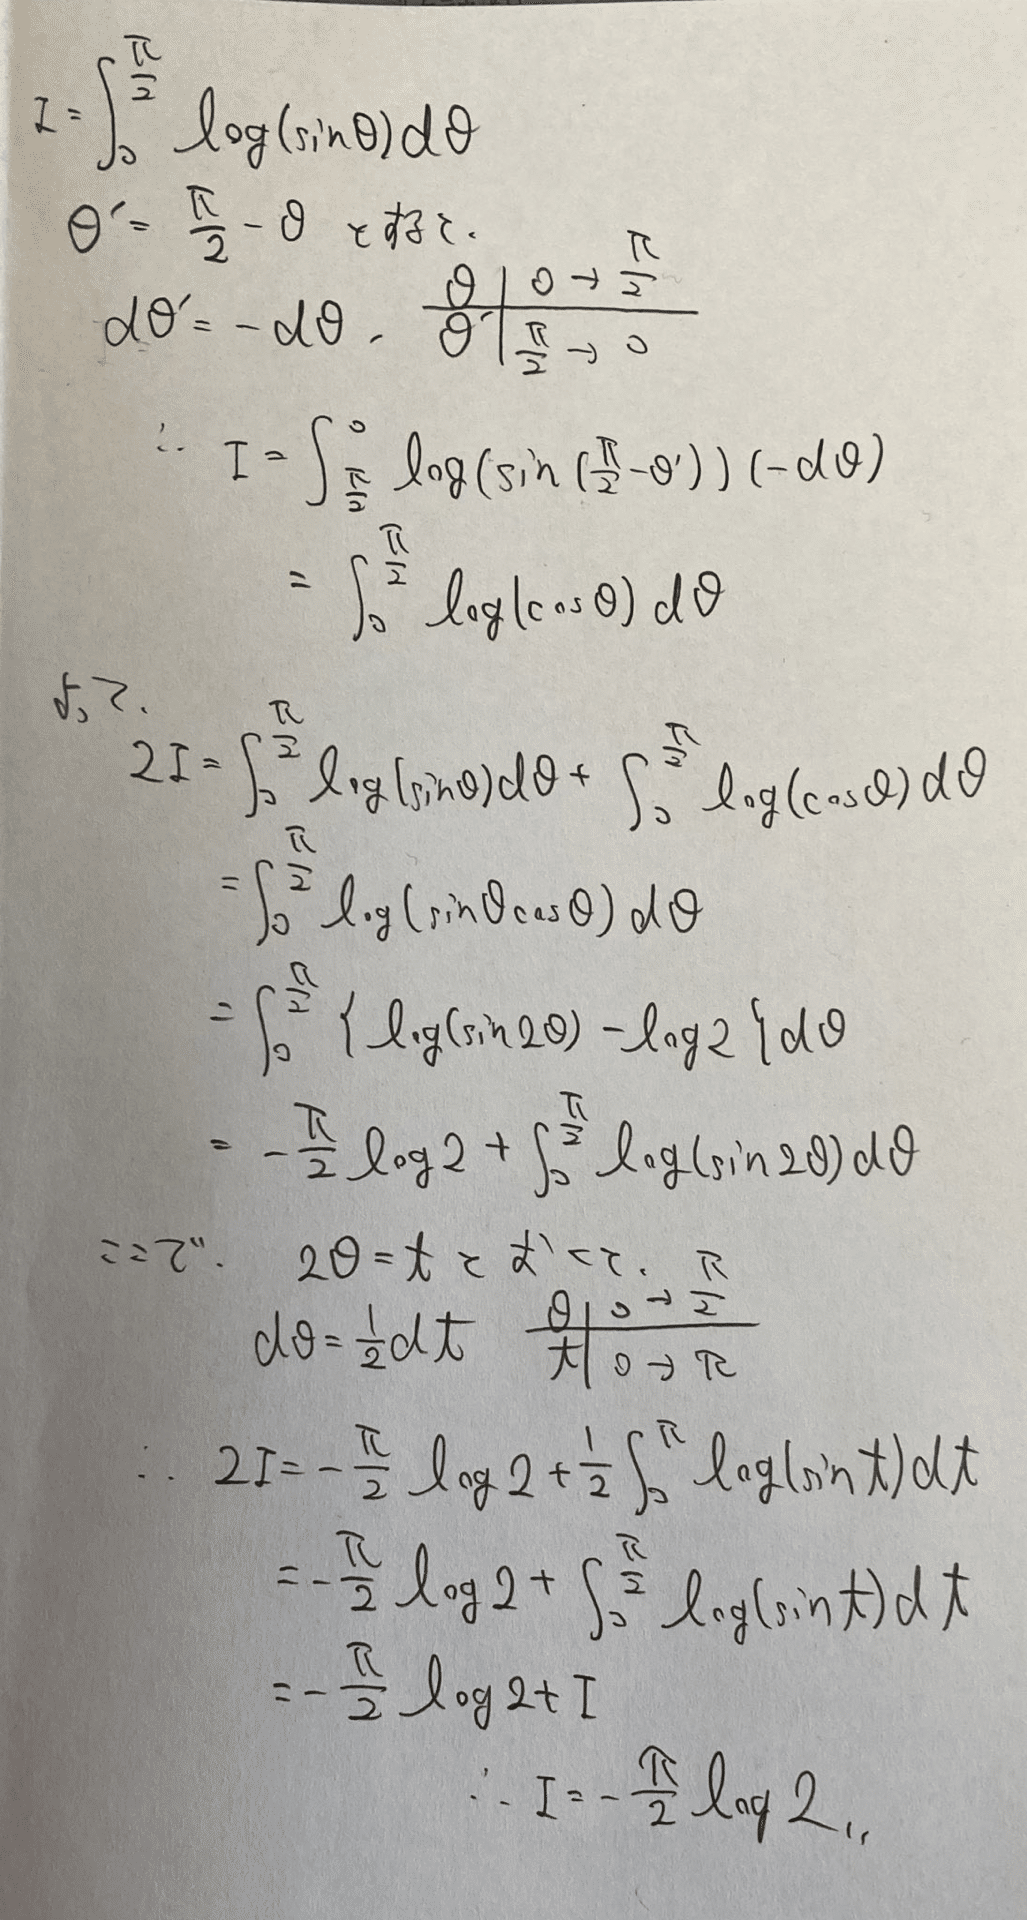 I = ∫₀^{π/2} log(sinθ)dθ
θ' = π/2 - θ とすると.
dθ' = -dθ, θ | 0 → π/2
θ' | π/2 → 0
∴ I = ∫_{π/2}^0 log(sin(π/2 - θ'))(-dθ)
= ∫₀^{π/2} log(cosθ)dθ
よって.
2I = ∫₀^{π/2} log(sinθ)dθ + ∫₀^{π/2} log(cosθ)dθ
= ∫₀^{π/2} log(sinθcosθ)dθ
= ∫₀^{π/2} {log(sin2θ) - log2}dθ
= -π/2 log2 + ∫₀^{π/2} log(sin2θ)dθ
ここで. 2θ = t とおくと.
dθ = 1/2 dt θ | 0 → π/2
t | 0 → π
∴ 2I = -π/2 log2 + 1/2 ∫₀^π log(sint)dt
= -π/2 log2 + ∫₀^{π/2} log(sint)dt
= -π/2 log2 + I
∴ I = -π/2 log2 〃